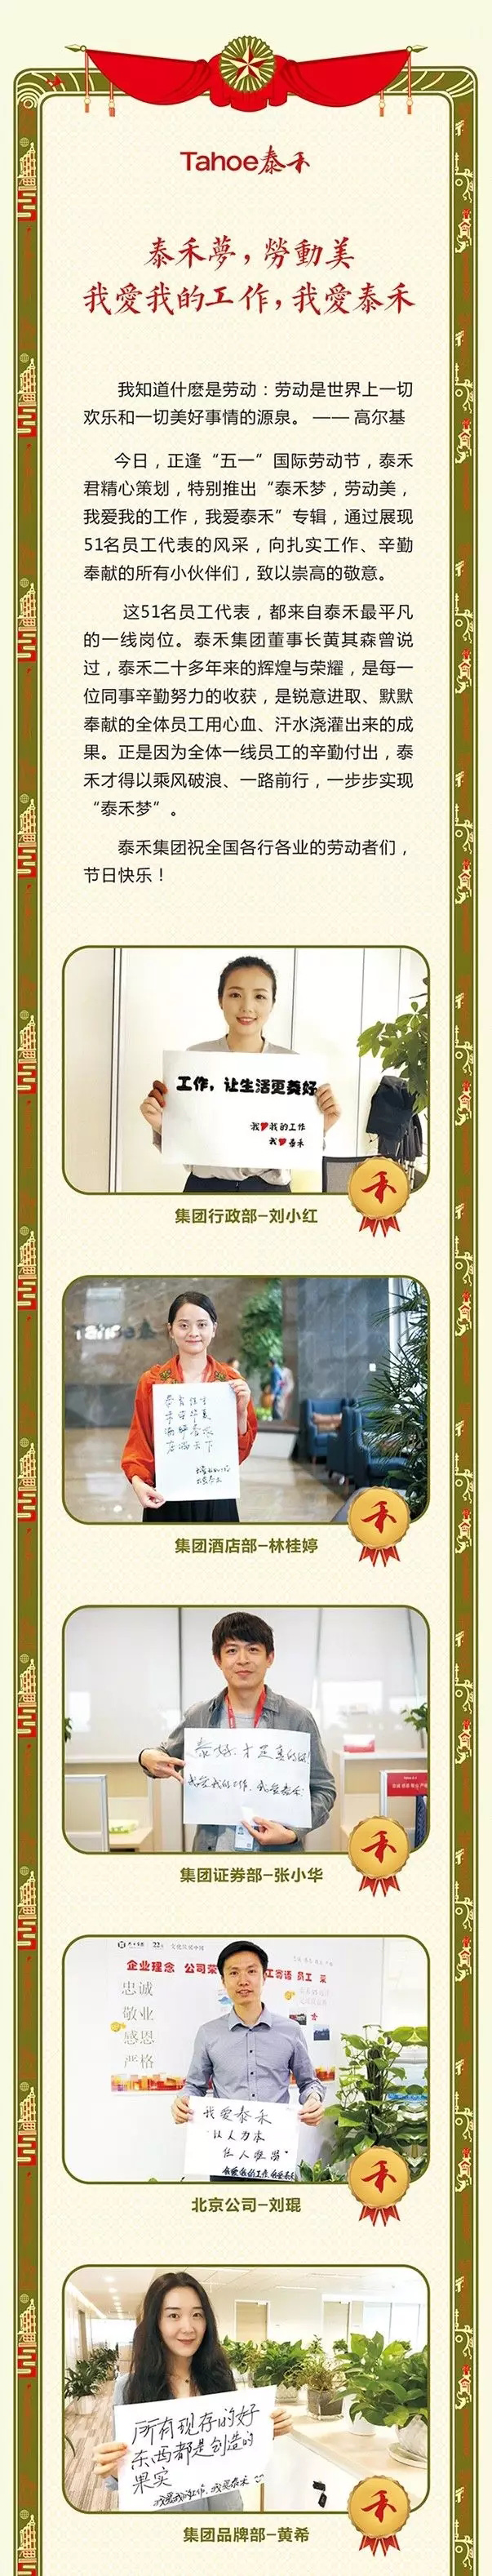 Tahoe泰禾
泰禾夢，勞動美
我愛我的工作，我愛泰禾
我知道什麽是劳动：劳动是世界上一切
欢乐和一切美好事情的源泉。 —— 高尔基
今日，正逢“五一”国际劳动节，泰禾
君精心策划，特别推出“泰禾梦，劳动美，
我爱我的工作，我爱泰禾”专辑，通过展现
51名员工代表的风采，向扎实工作、辛勤
奉献的所有小伙伴们，致以崇高的敬意。
这51名员工代表，都来自泰禾最平凡
的一线岗位。泰禾集团董事长黄其森曾说
过，泰禾二十多年来的辉煌与荣耀，是每一
位同事辛勤努力的收获，是锐意进取、默默
奉献的全体员工用心血、汗水浇灌出来的成
果。正是因为全体一线员工的辛勤付出，泰
禾才得以乘风破浪、一路前行，一步步实现
“泰禾梦”。
泰禾集团祝全国各行各业的劳动者们，
节日快乐！
工作，让生活更美好
我❤我的工作
我❤泰禾
禾
集团行政部–刘小红
禾
集团酒店部–林桂婷
泰好，才是真的好！
我爱我的工作，我爱泰禾
禾
集团证券部–张小华
企业理念 公司荣
工寄语 员工 采
忠诚
敬业
感恩
严格
我爱泰禾
“以人为本
任人唯贤”
我爱我的工作，我爱泰禾
禾
北京公司–刘琨
所有现存的好
东西都是创造的
果实
我爱我的工作，我爱泰禾
禾
集团品牌部–黄希